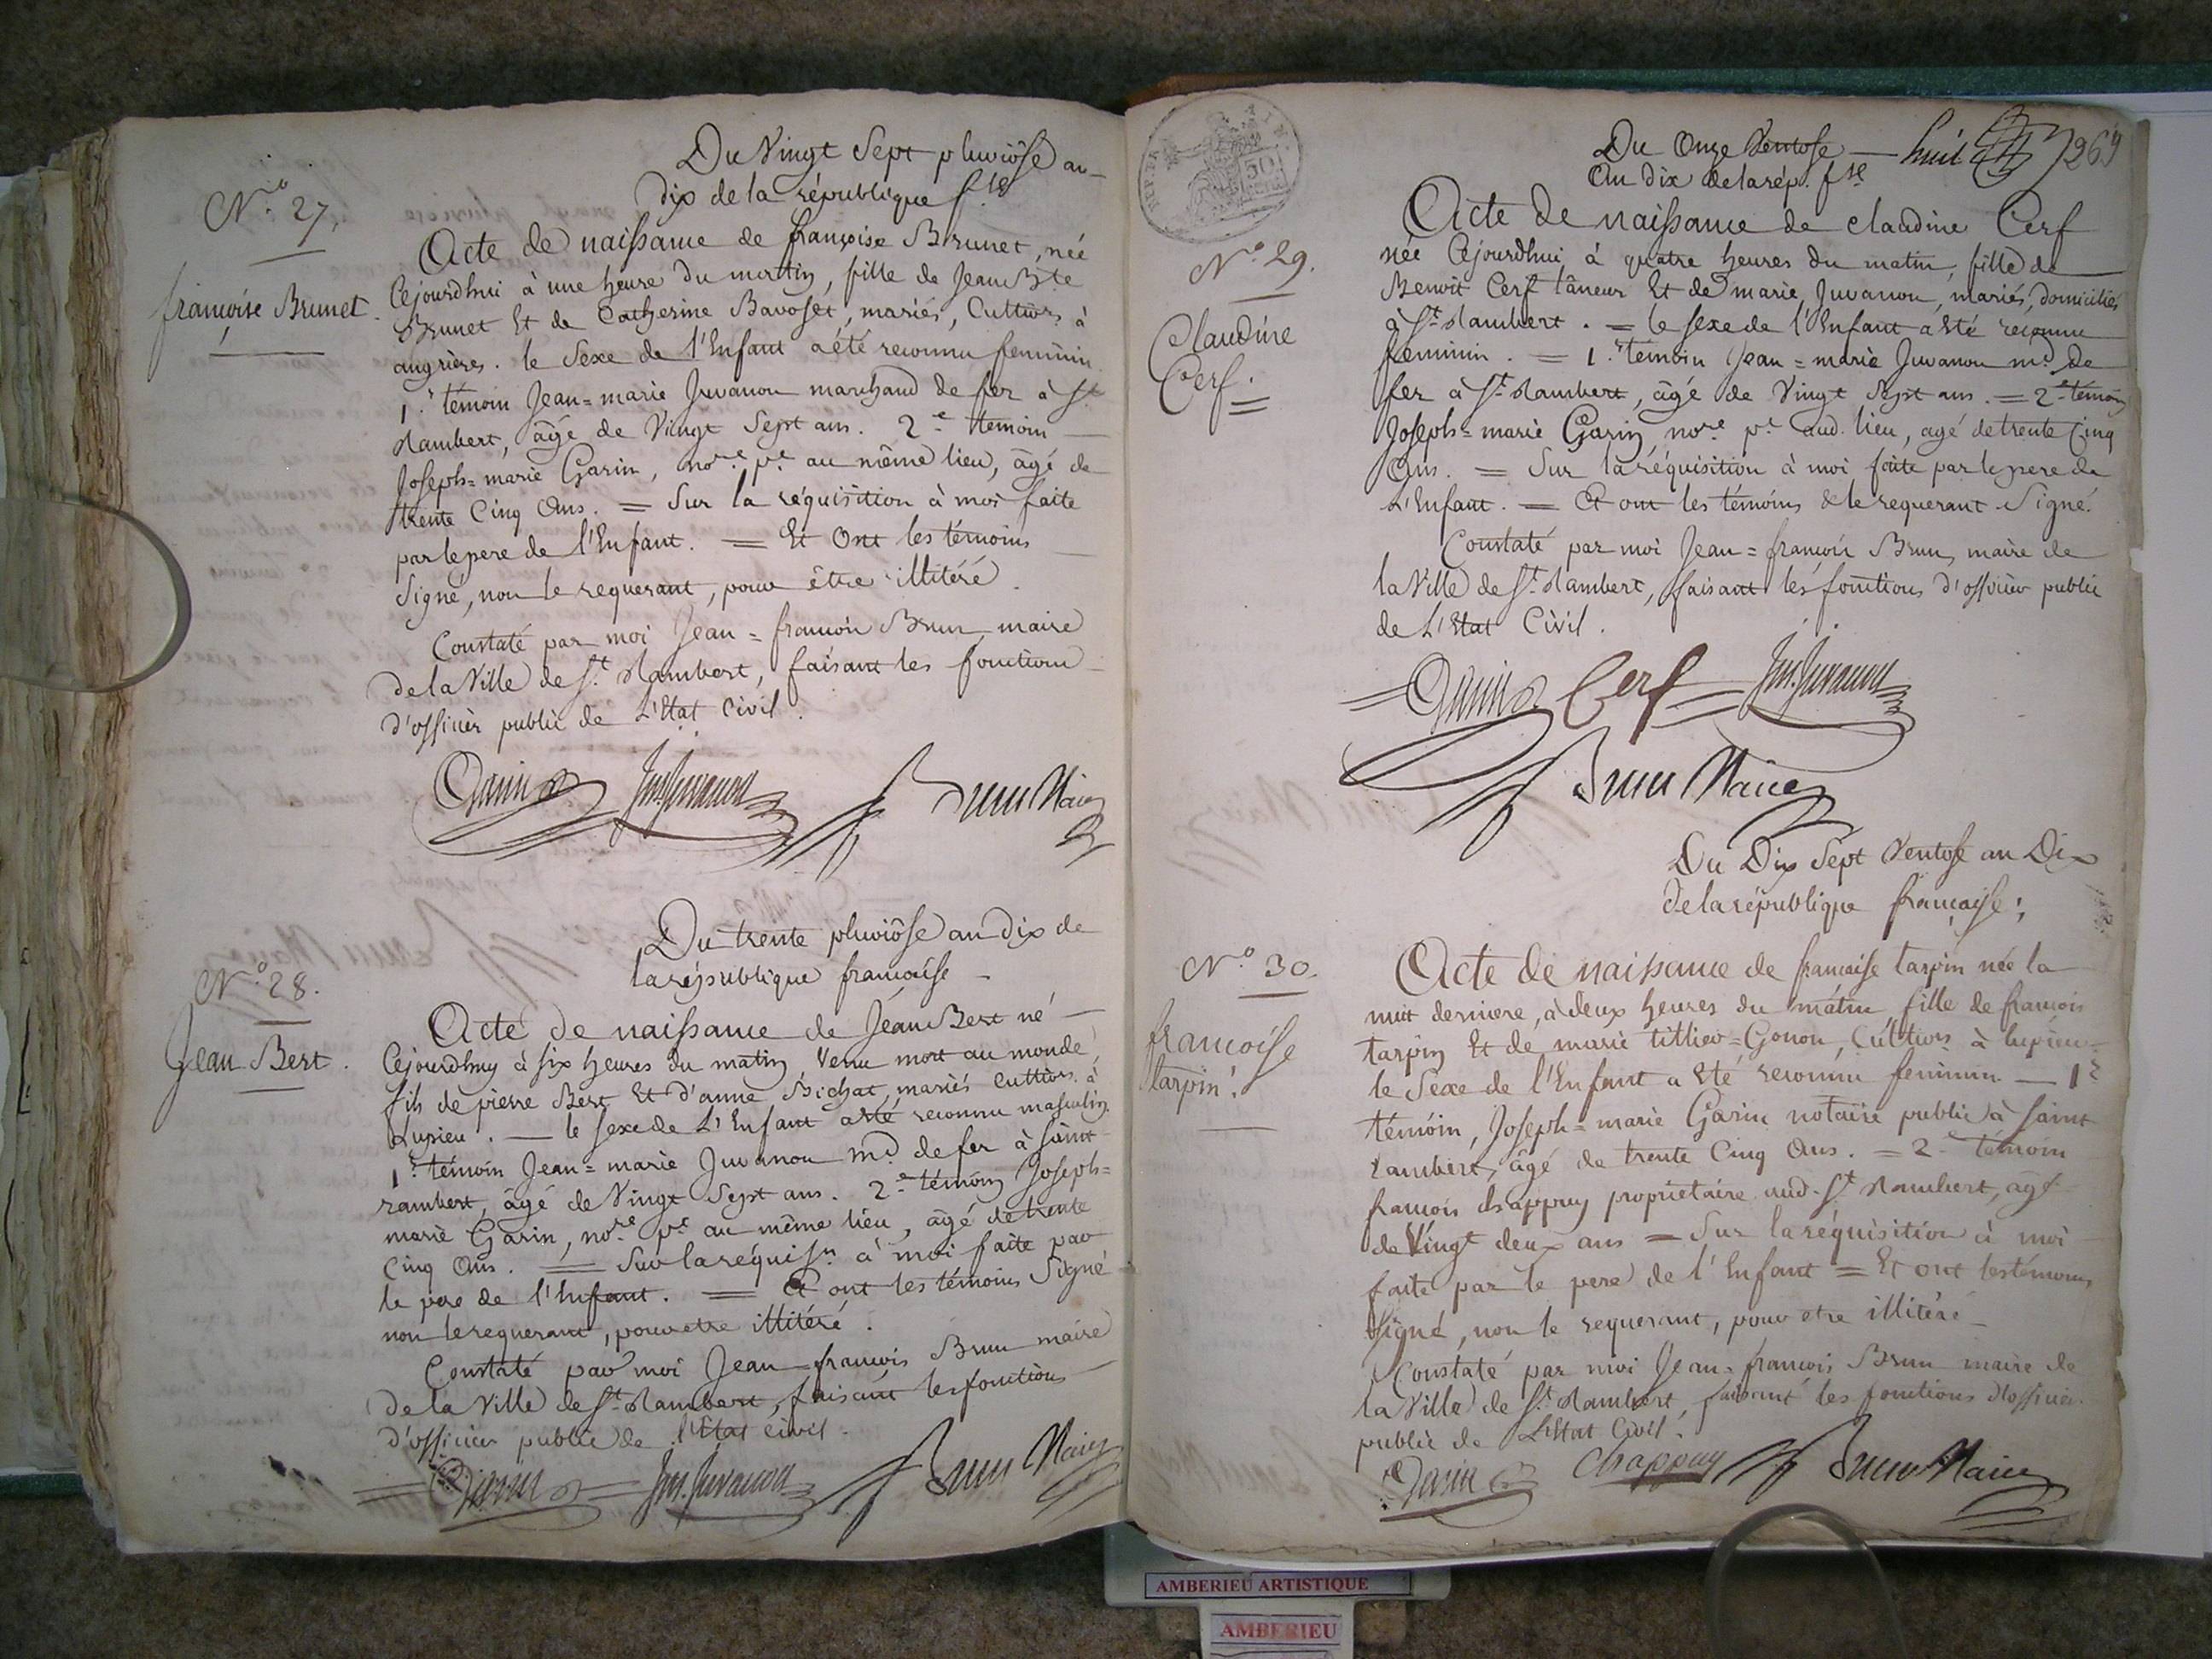 Du Vingt Sept pluviôse an
dix de la république f.se
N.o 27.
françoise Brunet.
Acte de naissance de françoise Brunet, née
Cejourdhui à une heure du matin, fille de Jean Bte
Brunet Et de Catherine Bavoset, mariés, Cultivrs à
angrières. le Sexe de l'Enfant a été reconnu feminin
1.r témoin Jean=marie Juvanon marchand de fer à St.
Rambert, âgé de Vingt Sept ans. 2.e témoin
Joseph=marie Garin, no.re p.c au même lieu, âgé de
trente Cinq Ans. = Sur la réquisition à moi faite
par le pere de l'Enfant. = Et Ont les témoins
Signé, non le requerant, pour être illitéré.
Constaté par moi Jean=francois Brun maire
de la Ville de St. Rambert, faisant les fonctions
d'officier public de L'Etat Civil.
Garin Jm. Juvanon Brun Maire
Du trente pluviôse an dix de
la république française
N.o 28.
Jean Bert.
Acte de naissance de Jean Bert né
Cejourdhuy à six heures du matin venu mort au monde,
fils de pierre Bert Et d'anne Bichat, mariés cultivrs. à
Lupieu. — le sexe de L'Enfant a été reconnu masculin
1.r témoin Jean=marie Juvanon m.d de fer à saint
rambert, âgé de Vingt Sept ans. 2.e témoin Joseph=
marie Garin, no.re p.c au même lieu, âgé de trente
Cinq Ans. = Sur la réquis.n à moi faite par
le pere de l'Enfant. = Et ont les témoins Signé
non le requerant, pour etre illitéré.
Constaté par moi Jean=francois Brun maire
de la Ville de St. Rambert, faisant les fonctions
d'officier public de l'Etat civil.
Garin Jm. Juvanon Brun Maire
Du Onze Ventose — huit 269
An dix de la rép. f.se
N.o 29.
Claudine
Cerf.
Acte de naissance de claudine Cerf
née Cejourdhui à quatre heures du matin, fille de
Benoit Cerf tâneur Et de marie Juvanon, mariés, domiciliés
à St. Rambert. = le sexe de l'Enfant a Eté reconnu
feminin. = 1.r témoin Jean=marie Juvanon m.d de
fer à St. Rambert, âgé de Vingt Sept ans. = 2.e témoin
Joseph=marie Garin, no.re p.c aud. lieu, agé de trente Cinq
Ans. = Sur la réquisition à moi faite par le pere de
L'Enfant. = Et ont les témoins & le requerant Signé.
Constaté par moi Jean=francois Brun, maire de
la Ville de St. Rambert, faisant les fonctions d'officier public
de L'Etat Civil.
Garin Cerf Jm. Juvanon
Brun Maire
Du Dix Sept Ventose an Dix
de la république française;
N.o 30.
francoise
tarpin.
Acte de naissance de francoise tarpin née la
nuit derniere, à deux heures du matin, fille de francois
tarpin Et de marie tillier=Gonon, Cultivrs à lupieu
le Sexe de l'Enfant a Eté reconnu feminin — 1.r
témoin, Joseph=marie Garin notaire public à saint
rambert, âgé de trente Cinq Ans. = 2.e témoin
francois chappuy proprietaire aud. St. Rambert, agé
de Vingt deux ans = Sur la réquisition à moi
faite par le pere de l'Enfant = Et ont les témoins
Signé, non le requerant, pour etre illitéré
Constaté par moi Jean=francois Brun maire de
la Ville de St. Rambert, faisant les fonctions d'officier
public de L'Etat Civil.
Garin Chappuy Brun Maire
AMBERIEU ARTISTIQUE
AMBERIEU